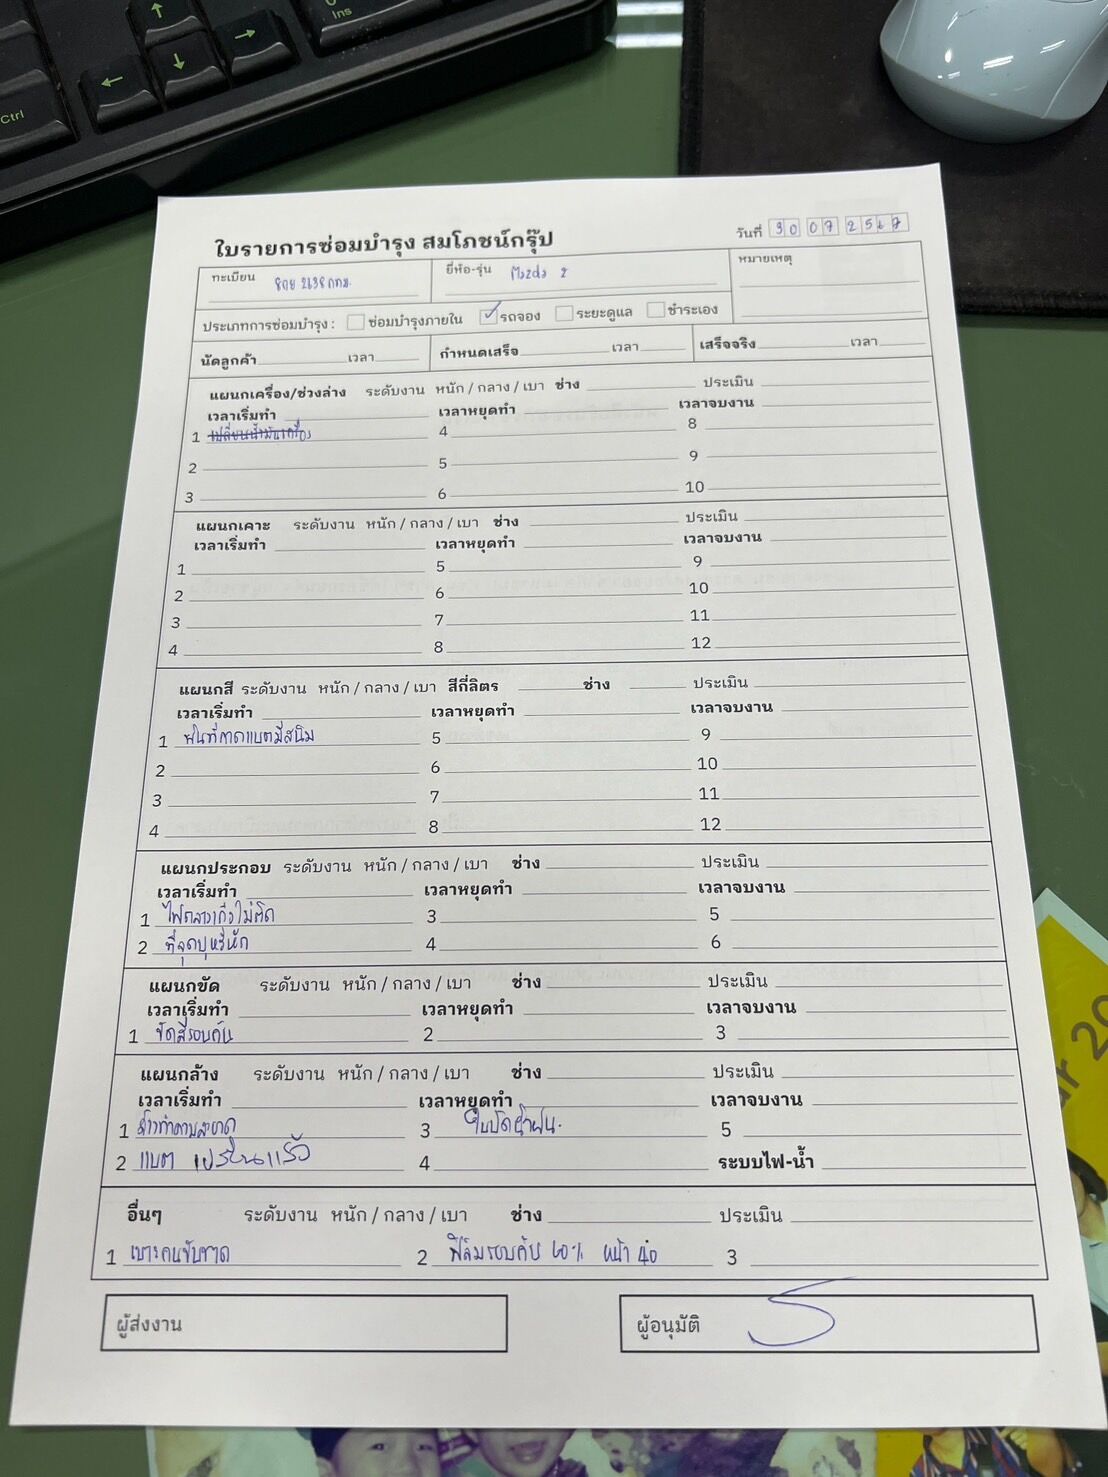 Ctrl
Ins
ใบรายการซ่อมบำรุง สมโภชน์กรุ๊ป
วันที่ 30 07 2567
ทะเบียน 8กย 2638 กทม.
ยี่ห้อ-รุ่น Mazda 2
หมายเหตุ
ประเภทการซ่อมบำรุง : ซ่อมบำรุงภายใน ✓ รถจอง ระยะดูแล ชำระเอง
นัดลูกค้า เวลา กำหนดเสร็จ เวลา เสร็จจริง เวลา
แผนกเครื่อง/ช่วงล่าง ระดับงาน หนัก / กลาง / เบา ช่าง ประเมิน
เวลาเริ่มทำ เวลาหยุดทำ เวลาจบงาน
1 เปลี่ยนน้ำมันเครื่อง 4 8
2 5 9
3 6 10
แผนกเคาะ ระดับงาน หนัก / กลาง / เบา ช่าง ประเมิน
เวลาเริ่มทำ เวลาหยุดทำ เวลาจบงาน
1 5 9
2 6 10
3 7 11
4 8 12
แผนกสี ระดับงาน หนัก / กลาง / เบา สีกี่ลิตร ช่าง ประเมิน
เวลาเริ่มทำ เวลาหยุดทำ เวลาจบงาน
1 พ่นที่ถาดแบตมีสนิม 5 9
2 6 10
3 7 11
4 8 12
แผนกประกอบ ระดับงาน หนัก / กลาง / เบา ช่าง ประเมิน
เวลาเริ่มทำ เวลาหยุดทำ เวลาจบงาน
1 ไฟกลางเก๋งไม่ติด 3 5
2 ที่จุดบุหรี่หัก 4 6
แผนกขัด ระดับงาน หนัก / กลาง / เบา ช่าง ประเมิน
เวลาเริ่มทำ เวลาหยุดทำ เวลาจบงาน
1 ขัดสีรอบคัน 2 3
แผนกล้าง ระดับงาน หนัก / กลาง / เบา ช่าง ประเมิน
เวลาเริ่มทำ เวลาหยุดทำ เวลาจบงาน
1 ล้างทำความสะอาด 3 ใบปัดน้ำฝน. 5
2 แบต เปลี่ยนแล้ว 4 ระบบไฟ-น้ำ
อื่นๆ ระดับงาน หนัก / กลาง / เบา ช่าง ประเมิน
1 เบาะคนขับขาด 2 ฟิล์มรอบคัน 60% หน้า 40 3
ผู้ส่งงาน
ผู้อนุมัติ